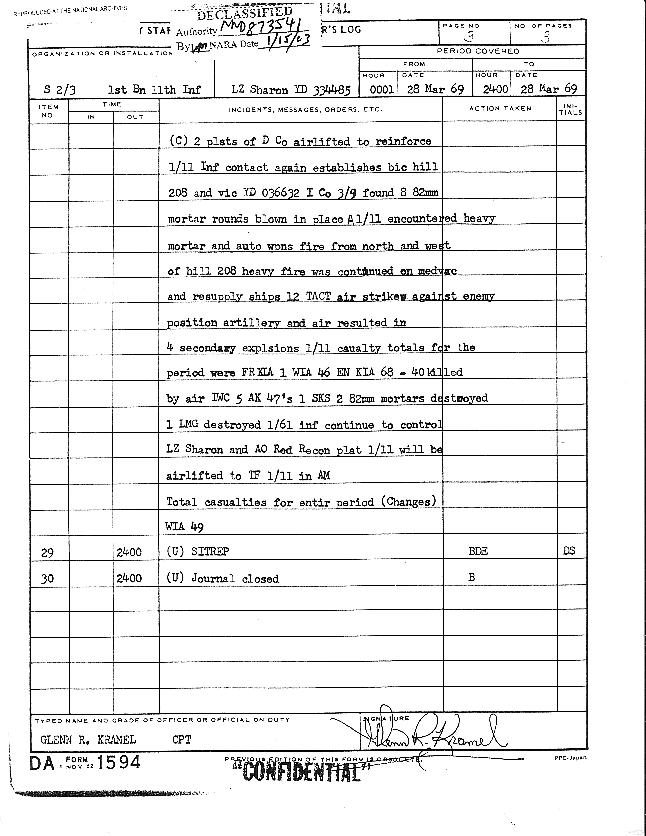 REPRODUCED AT THE NATIONAL ARCHIVES
DECLASSIFIED
Authority NND873541
By NARA Date 1/15/03
STAF R'S LOG
PAGE NO
3
NO. OF PAGES
3
ORGANIZATION OR INSTALLATION
PERIOD COVERED
FROM TO
HOUR DATE HOUR DATE
S 2/3 1st Bn 11th Inf LZ Sharon YD 334485 0001 28 Mar 69 2400 28 Mar 69
ITEM NO TIME INCIDENTS, MESSAGES, ORDERS, ETC. ACTION TAKEN INI-TIALS
IN OUT
(C) 2 plats of D Co airlifted to reinforce
1/11 Inf contact again establishes bic hill
208 and vic YD 036632 I Co 3/9 found 8 82mm
mortar rounds blown in place A1/11 encountered heavy
mortar and auto wpns fire from north and west
of hill 208 heavy fire was continued on medvac
and resupply ships 12 TACT air strikew against enemy
position artillery and air resulted in
4 secondary explsions 1/11 caualty totals for the
period were FR KIA 1 WIA 46 EN KIA 68 - 40 killed
by air IWC 5 AK 47's 1 SKS 2 82mm mortars destroyed
1 LMG destroyed 1/61 inf continue to control
LZ Sharon and AO Red Recon plat 1/11 will be
airlifted to TF 1/11 in AM
Total casualties for entir period (Changes)
WIA 49
29 2400 (U) SITREP BDE DS
30 2400 (U) Journal closed B
TYPED NAME AND GRADE OF OFFICER OR OFFICIAL ON DUTY
SIGNATURE
GLENN R. KRAMEL CPT
Glenn R. Kramel
DA FORM 1 NOV 62 1594
PREVIOUS EDITION OF THIS FORM IS OBSOLETE.
CONFIDENTIAL
PPC-Japan